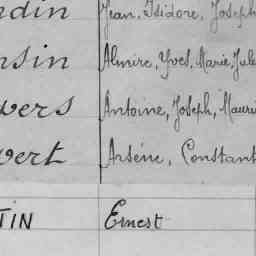 din Jean, Isidore, Joseph
sin Almire, Yves, Marie, Jule
vers Antoine, Joseph, Mauri
vert Arsène, Constant
TIN Ernest